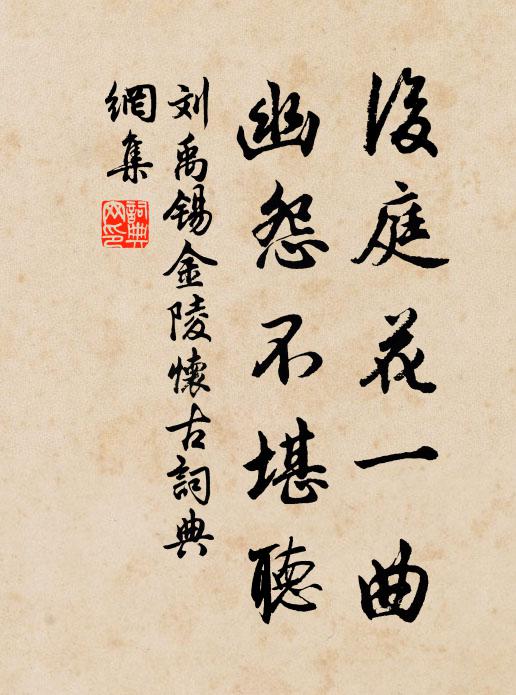 後庭花一曲
幽怨不堪聽
刘禹錫金陵懷古詞典
網集
詞典
网印